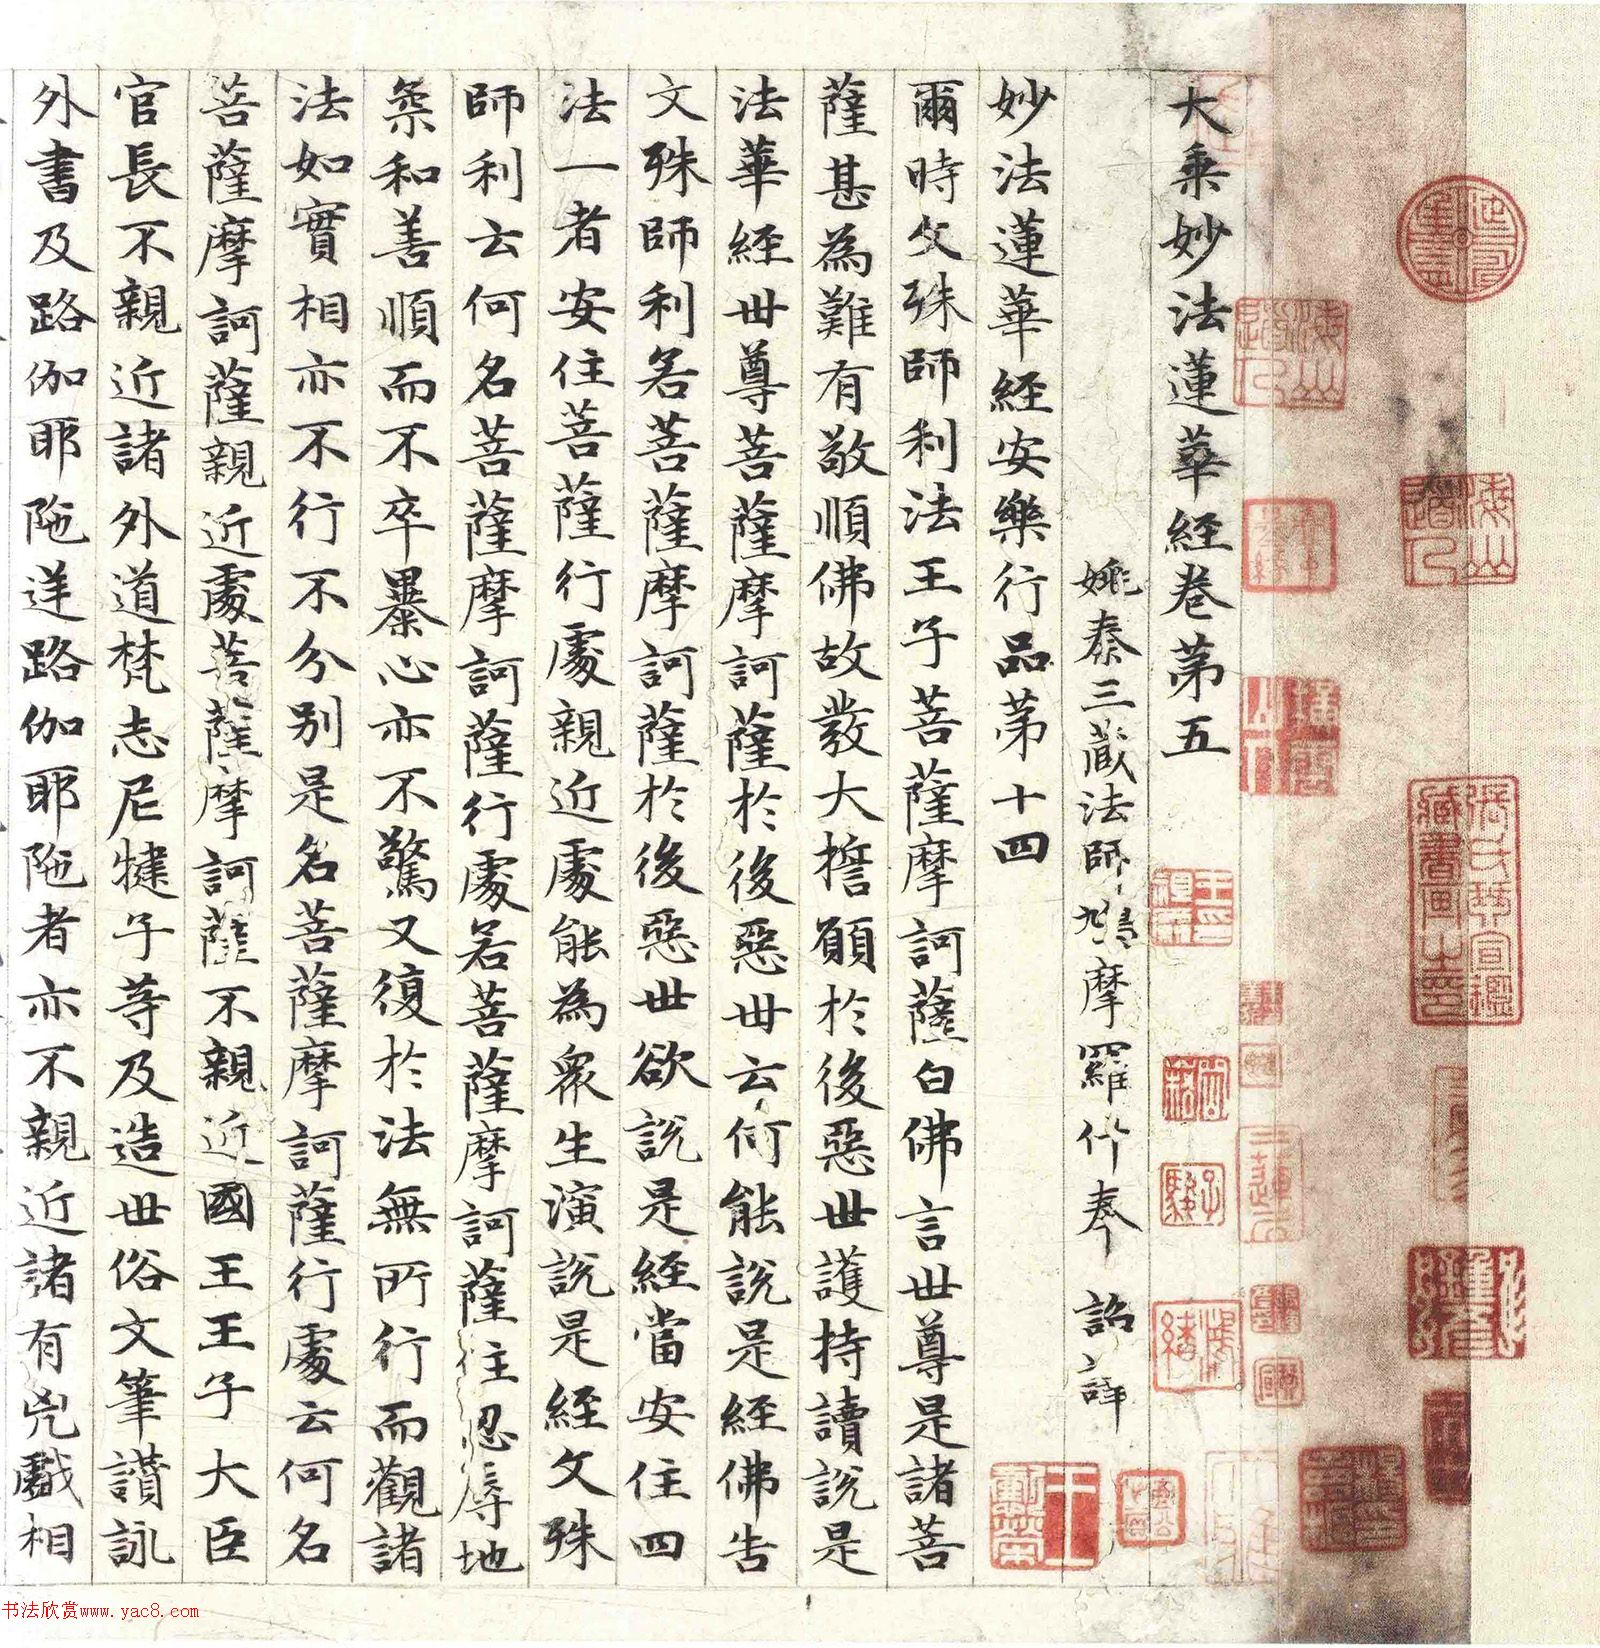 大乘妙法蓮華經卷第五
姚秦三藏法師鳩摩羅什奉 詔譯
妙法蓮華經安樂行品第十四
爾時文殊師利法王子菩薩摩訶薩白佛言世尊是諸菩
薩甚為難有敬順佛故發大擔願於後惡世護持讀說是
法華經世尊菩薩摩訶薩於後惡世云何能說是經佛告
文殊師利若菩薩摩訶薩於後惡世欲說是經當安住四
法一者安住菩薩行處親近處能為眾生演說是經文殊
師利云何名菩薩摩訶薩行處若菩薩摩訶薩住忍辱地
柔和善順而不卒暴心亦不驚又復於法無所行而觀諸
法如實相亦不行不分別是名菩薩摩訶薩行處云何名
菩薩摩訶薩親近處菩薩摩訶薩不親近國王王子大臣
官長不親近諸外道梵志尼揵子等及造世俗文筆讚詠
外書及路伽耶陁逆路伽耶陁者亦不親近諸有兇戲相
书法欣赏www.yac8.com